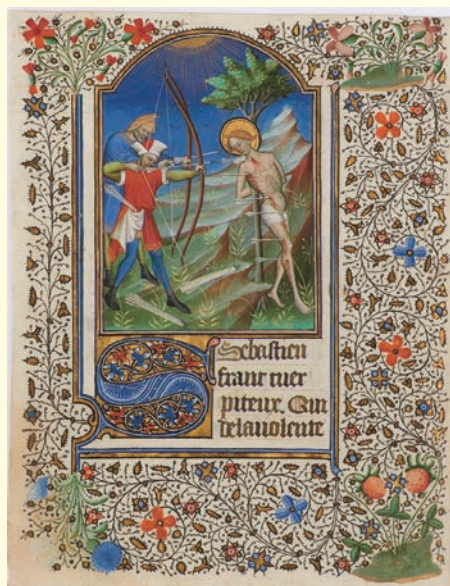 Sebastien
franc cuer
piteux. Qui
de la volente